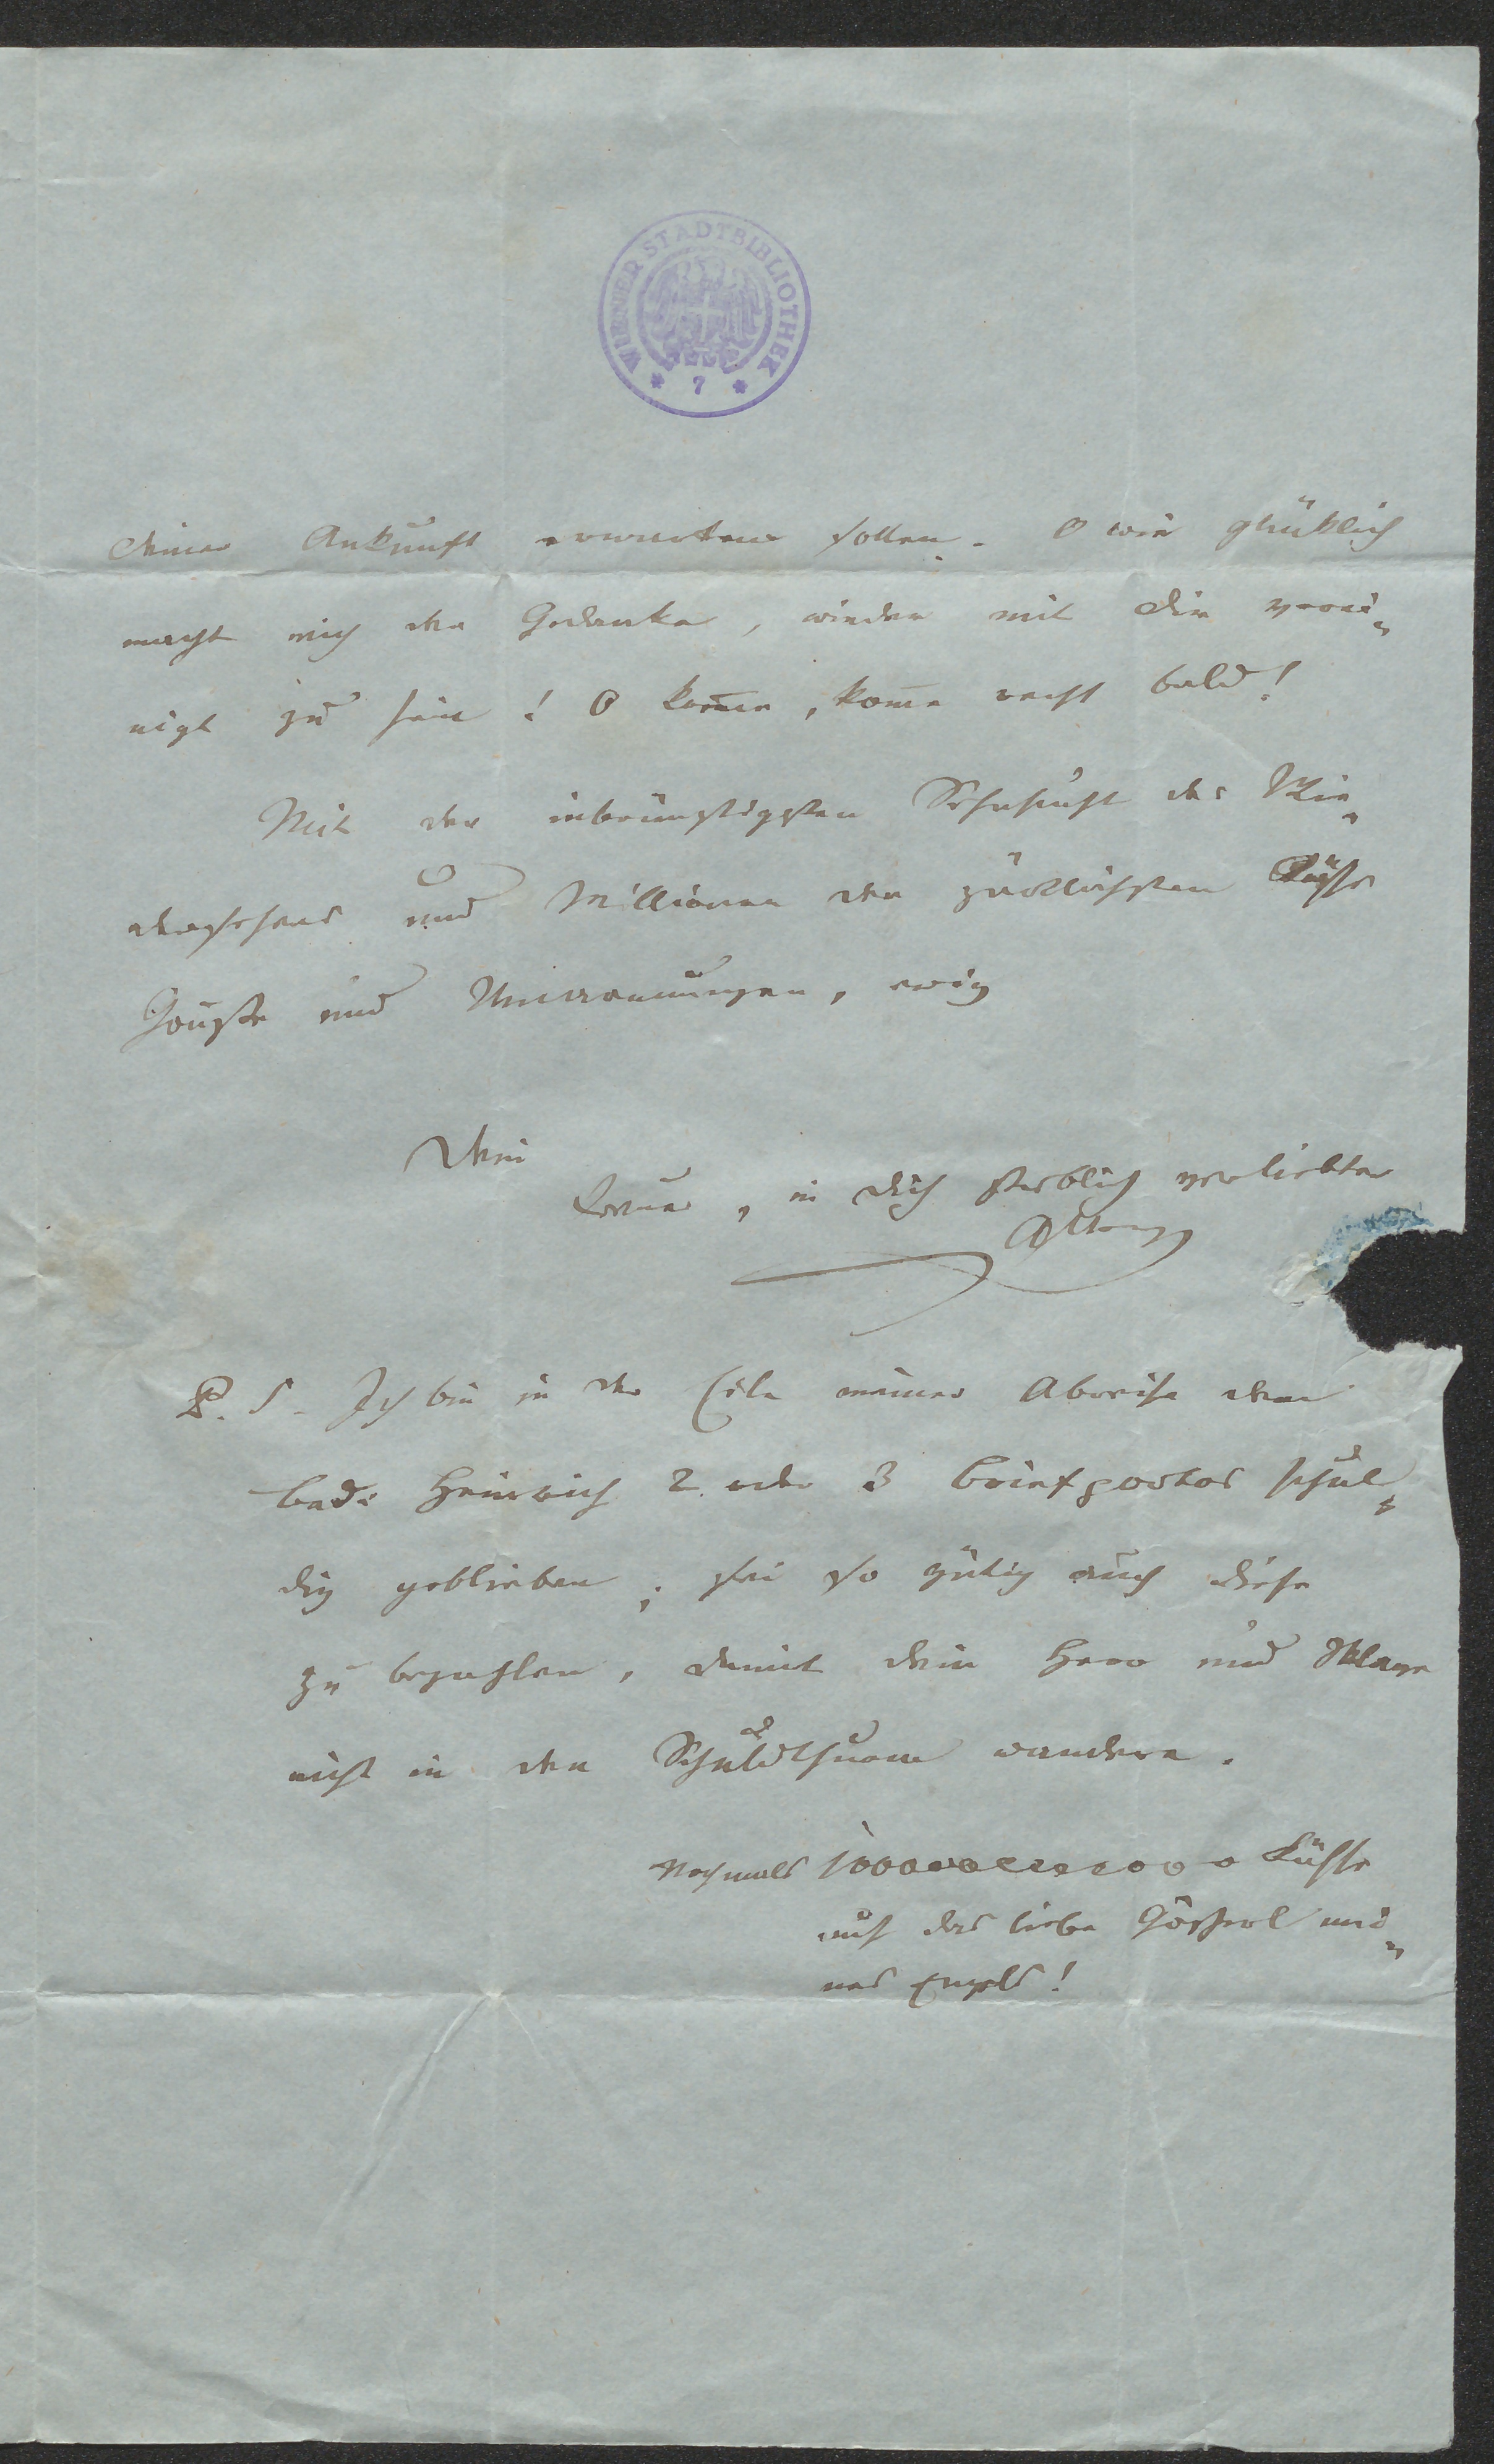 WIENER STADTBIBLIOTHEK
* 7 *
deiner Ankunft erwarten sollen. O wie glüklich
macht mich der Gedanke, wieder mit dir verei=
nigt zu sein! O kom̄e, kom̄e recht bald!
Mit der inbrünstigsten Sehnsucht des Wie=
dersehens und Millionen der zärtlichsten Küsse
Grüße und Umarmungen, ewig
Dein
treuer, in dich sterblich verliebter
P. S. Ich bin in der Eile meiner Abreise dem
Heinrich 2 oder 3 Briefportos schul=
dig geblieben; sei so gütig auch diese
zu bezahlen, damit dein Herr und Sklave
nicht in den Schuldthurm wandere.
Nochmals Küsse
auf das liebe Göscherl mei=
nes Engels!